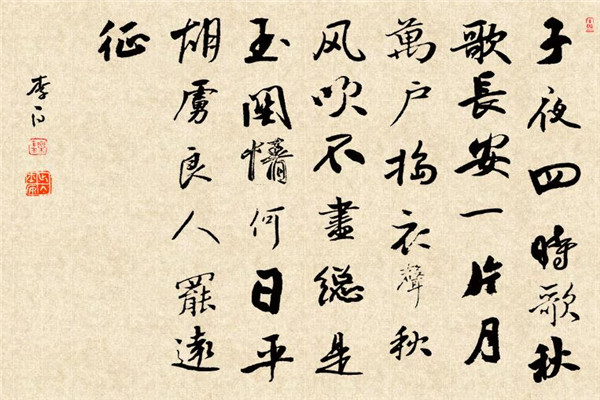 子夜四時歌秋
歌長安一片月
萬户搗衣聲秋
风吹不盡總是
玉關情何日平
胡虜良人罷遠
征
李白